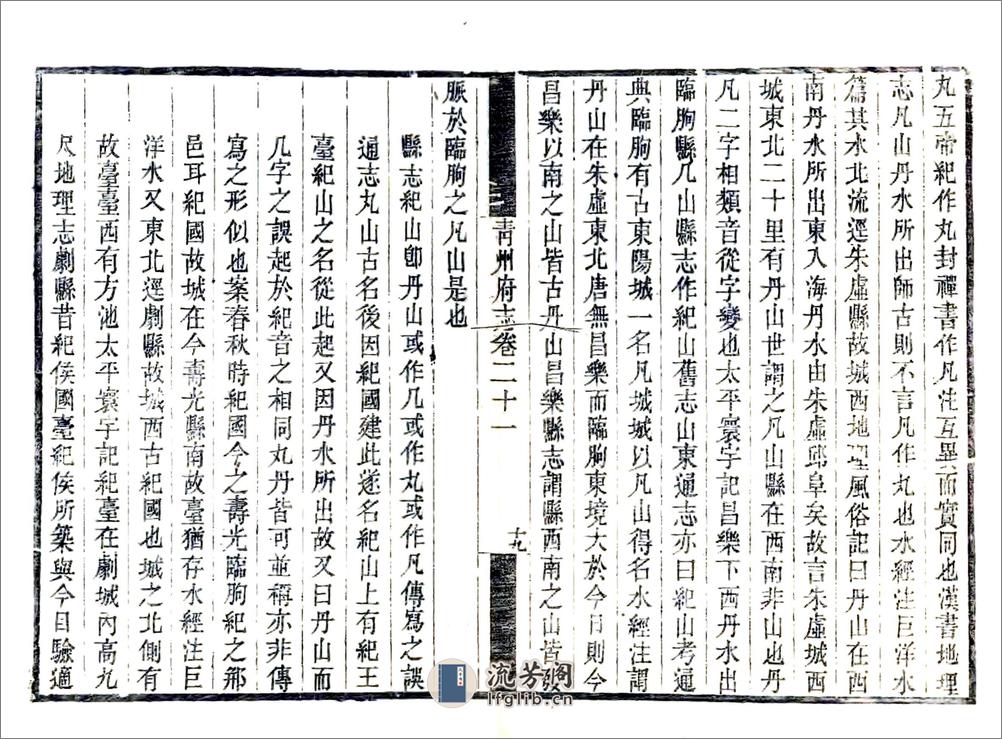 丸五帝紀作丸封禪書作凡注互異而實同也漢書地理
志凡山丹水所出師古則不言凡作丸也水經注巨洋水
篇其水北流逕朱虛縣故城西地理風俗記曰丹山在西
南丹水所出東入海丹水由朱虛邱阜矣故言朱虛城西
城東北二十里有丹山世謂之凡山縣在西南非山也丹
凡二字相類音從字變也太平寰宇記昌樂下西丹水出
臨朐縣几山縣志作紀山舊志山東通志亦曰紀山考通
典臨朐有古東陽城一名凡城城以凡山得名水經注謂
丹山在朱虛東北唐無昌樂而臨朐東境大於今日則今
昌樂以南之山皆古丹山昌樂縣志謂縣西南之山皆發
脈於臨朐之凡山是也
縣志紀山卽丹山或作几或作丸或作凡傳寫之誤
通志丸山古名後因紀國建此遂名紀山上有紀王
臺紀山之名從此起又因丹水所出故又曰丹山而
几字之誤起於紀音之相同丸丹皆可並稱亦非傳
寫之形似也案春秋時紀國今之壽光臨朐紀之郱
邑耳紀國故城在今壽光縣南故臺猶存水經注巨
洋水又東北逕劇縣故城西古紀國也城之北側有
故臺臺西有方池太平寰宇記紀臺在劇城內高九
尺地理志劇縣昔紀侯國臺紀侯所築與今目驗適
青州府志卷二十一
十九
流芳閣
lfglib.cn